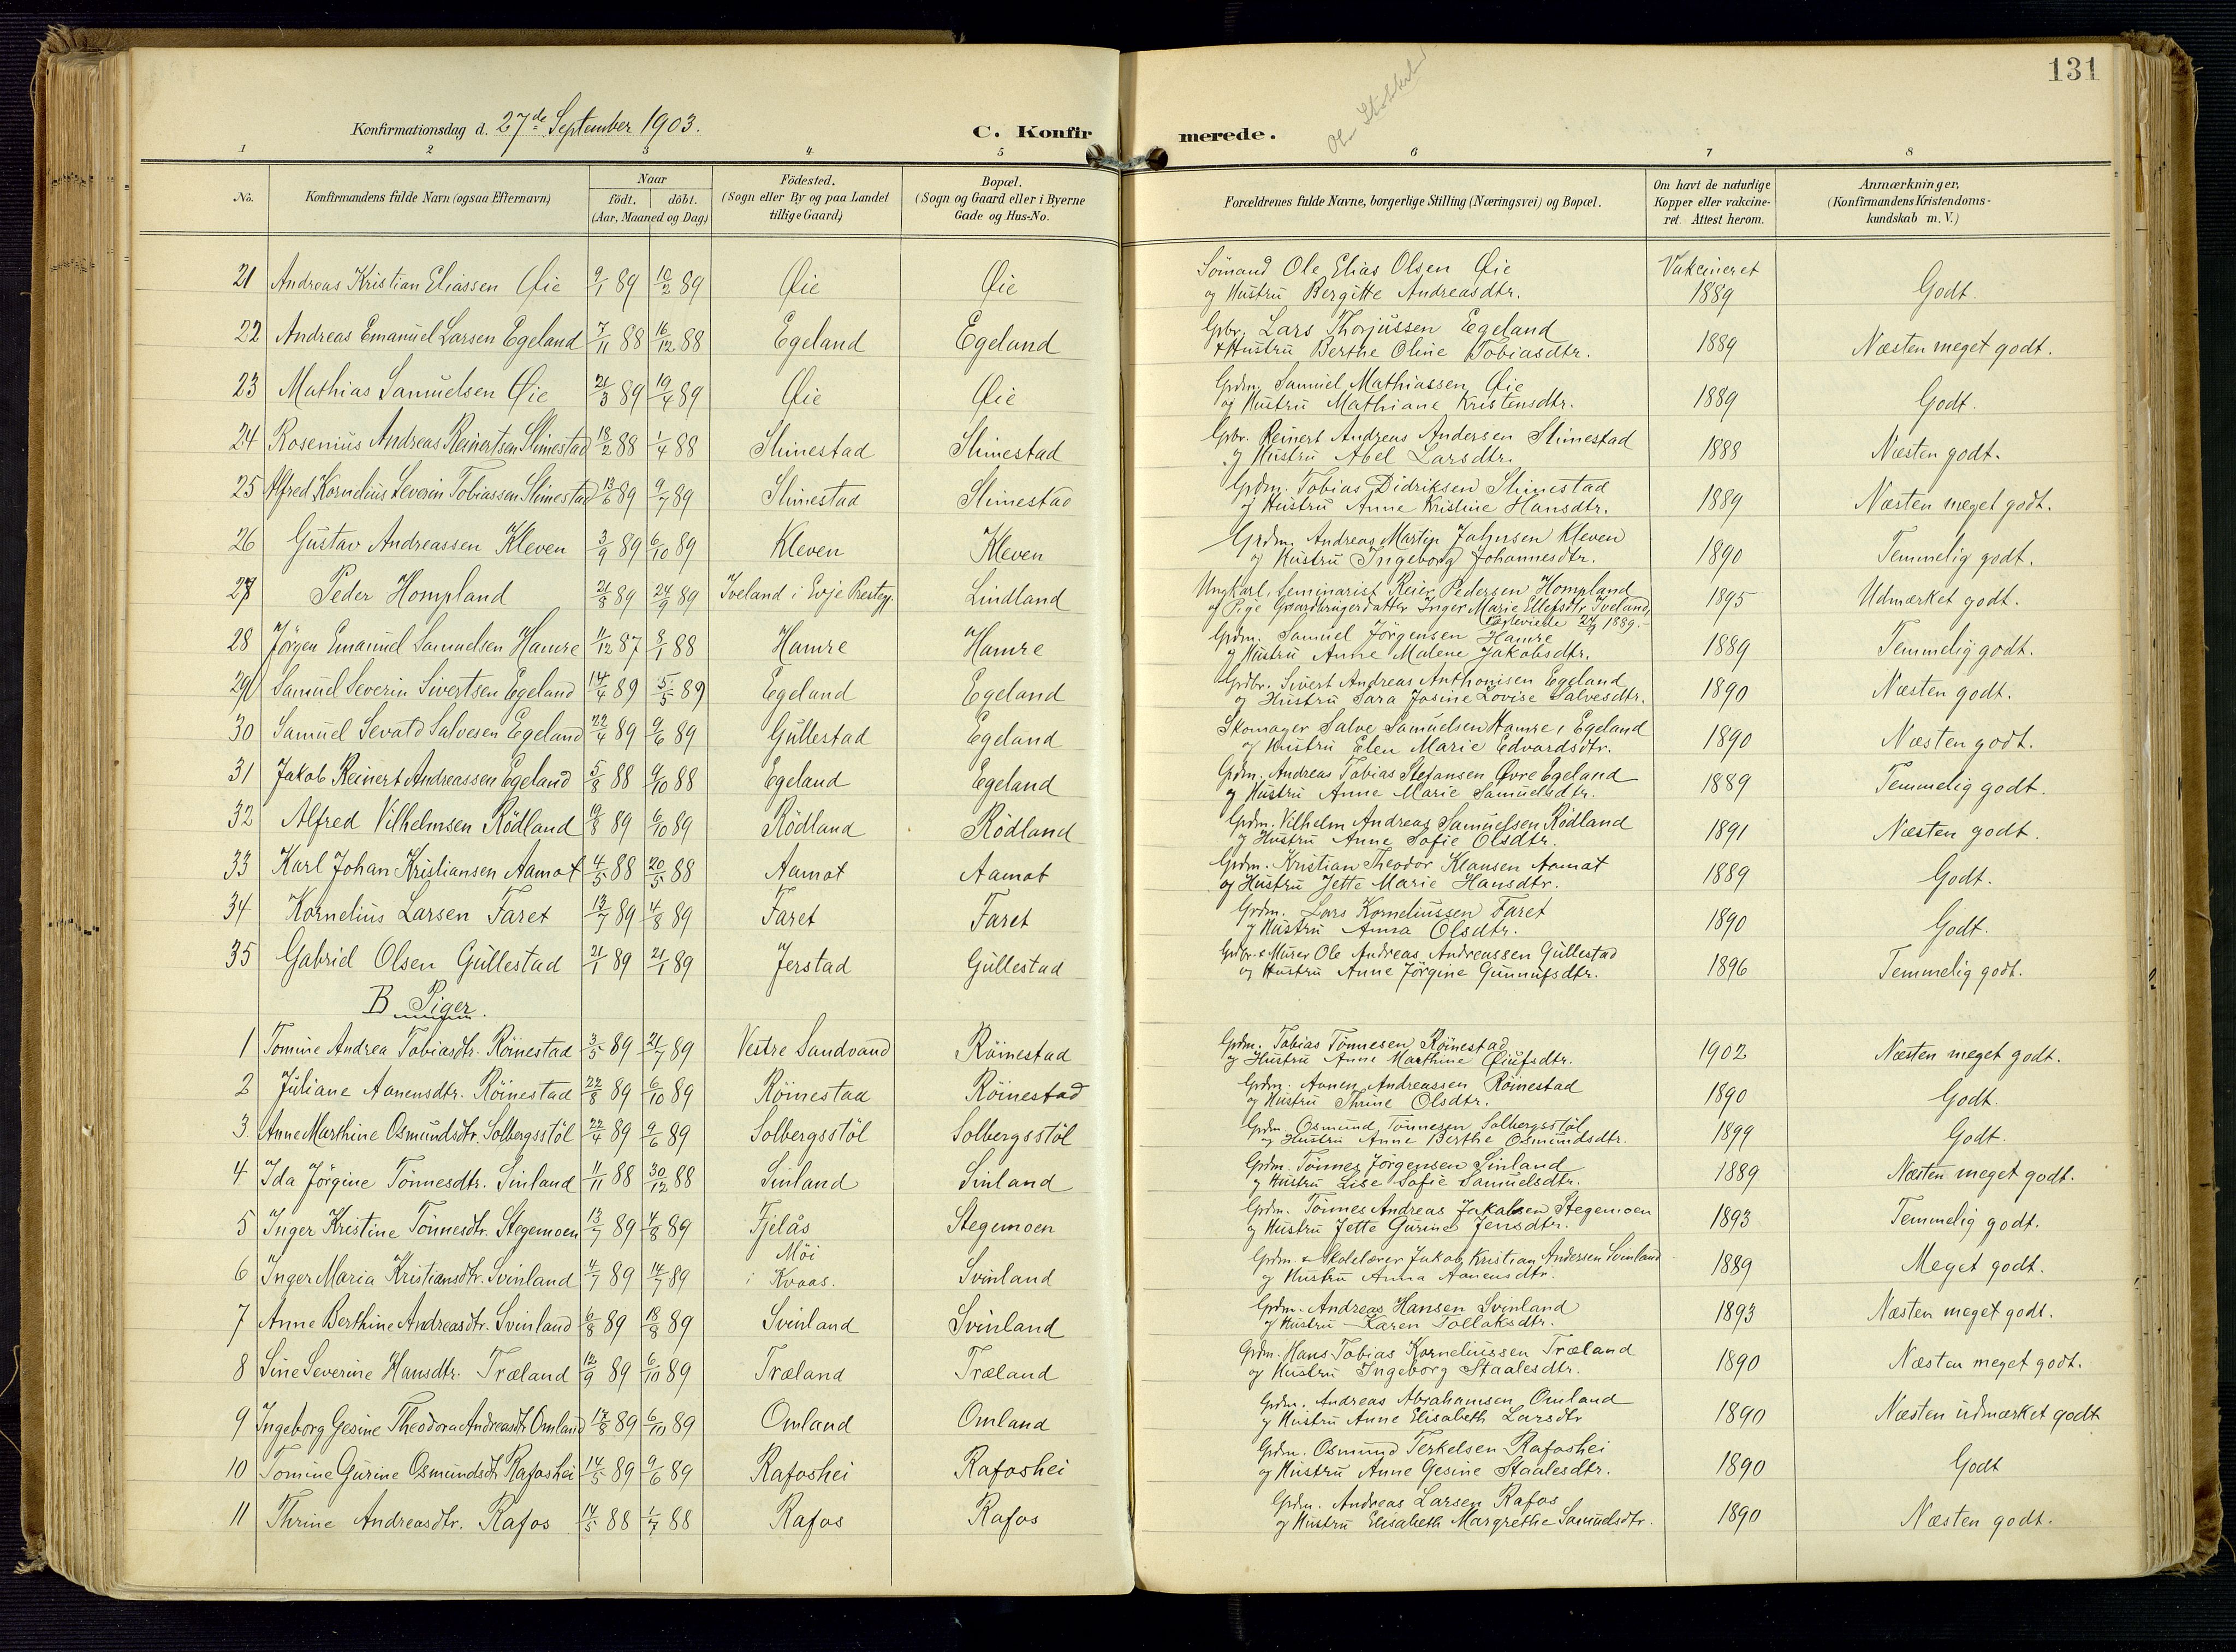 131
Konfirmationsdag d. 27de September 1903.
C. Konfirmerede.
1 2 3 4 5 6 7 8
No.
Konfirmandens fulde Navn (ogsaa Efternavn)
Naar
födt. | döbt.
(Aar, Maaned og Dag)
Födested.
(Sogn eller By og paa Landet
tillige Gaard)
Bopæl.
(Sogn og Gaard eller i Byerne
Gade og Hus-No.
Forældrenes fulde Navne, borgerlige Stilling (Næringsvei) og Bopæl.
Om havt de naturlige
Kopper eller vakcine-
ret. Attest herom.
Anmærkninger.
(Konfirmandens Kristendoms-
kundskab m. V.)
21 Andreas Kristian Eliassen Øie 9/1 89 10/2 89 Øie Øie Sömand Ole Elias Olsen Øie og Hustru Bergitte Andreasdtr. Vakcineret 1889 Godt.
22 Andreas Emanuel Larsen Egeland 7/11 88 16/12 88 Egeland Egeland Gbr. Lars Thorjussen Egeland & Hustru Berthe Oline Tobiasdtr. 1889 Næsten meget godt.
23 Mathias Samuelsen Øie 21/3 89 19/4 89 Øie Øie Grdm. Samuel Mathiassen Øie og Hustru Mathiane Kristensdtr. 1889 Godt.
24 Rosenius Andreas Reinertsen Slimestad 18/2 88 1/4 88 Slimestad Slimestad Gbr. Reinert Andreas Andersen Slimestad og Hustru Abel Larsdtr. 1888 Næsten godt.
25 Alfred Kornelius Severin Tobiassen Slimestad 13/6 89 9/7 89 Slimestad Slimestad Grdm. Tobias Didriksen Slimestad og Hustru Anne Kristine Hansdtr. 1889 Næsten meget godt.
26 Gustav Andreassen Kleven 3/9 89 6/10 89 Kleven Kleven Grdm. Andreas Martin Jahnsen Kleven og Hustru Ingeborg Johannesdtr. 1890 Temmelig godt.
27 Peder Hompland 21/8 89 24/9 89 Iveland i Evje Prestegj. Lindland Ungkarl, Seminarist Reier Pedersen Hompland og Pige Gaardbrugerdatter Inger Marie Ellefsdtr. Iveland, 24/9 1889.- 1895 Udmærket godt.
28 Jörgen Emanuel Samuelsen Hamre 11/12 87 8/1 88 Hamre Hamre Grdm. Samuel Jörgensen Hamre og Hustru Anne Malene Jakobsdtr. 1889 Temmelig godt.
29 Samuel Severin Sivertsen Egeland 14/4 89 5/5 89 Egeland Egeland Grdbr. Sivert Andreas Anthonisen Egeland og Hustru Sara Josine Lovise Salvesdtr. 1890 Næsten godt.
30 Samuel Sevald Salvesen Egeland 22/4 89 9/6 89 Gullestad Egeland Skomager Salve Samuelsen Hamre, Egeland og Hustru Elen Marie Edvardsdtr. 1890 Næsten godt.
31 Jakob Reinert Andreassen Egeland 5/8 88 9/10 88 Egeland Egeland Grdm. Andreas Tobias Stefansen Øvre Egeland og Hustru Anne Marie Samuelsdtr. 1889 Temmelig godt.
32 Alfred Vilhelmsen Rödland 19/8 89 6/10 89 Rödland Rödland Grdm. Vilhelm Andreas Samuelsen Rödland og Hustru Anne Sofie Olsdtr. 1891 Næsten godt.
33 Karl Johan Kristiansen Aamot 4/5 88 20/5 88 Aamot Aamot Grdm. Kristian Theodor Klausen Aamot og Hustru Jette Marie Hansdtr. 1889 Godt.
34 Kornelius Larsen Faret 13/7 89 4/8 89 Faret Faret Grdm. Lars Korneliussen Faret og Hustru Anna Olsdtr. 1890 Godt.
35 Gabriel Olsen Gullestad 21/1 89 21/1 89 Jerstad Gullestad Grbr. & Murer Ole Andreas Andreassen Gullestad og Hustru Anne Jörgine Gunnufsdtr. 1896 Temmelig godt.
B Piger.
1 Tomine Andrea Tobiasdtr. Röinestad 3/5 89 21/7 89 Vestre Sandvand Röinestad Grdm. Tobias Tönnesen Röinestad og Hustru Anne Marthine Øiufsdtr. 1902 Næsten meget godt.
2 Juliane Aanensdtr. Röinestad 22/8 89 6/10 89 Röinestad Röinestad Grdm. Aanen Andreassen Röinestad og Hustru Thrine Olsdtr. 1890 Godt.
3 Anne Marthine Osmundsdtr. Solbergsstöl 22/4 89 9/6 89 Solbergsstöl Solbergsstöl Grdm. Osmund Tönnesen Solbergsstöl og Hustru Anne Berthe Osmundsdtr. 1899 Godt.
4 Ida Jörgine Tönnesdtr. Sinland 11/11 88 30/12 88 Sinland Sinland Grdm. Tönnes Jörgensen Sinland og Hustru Lise Sofie Samuelsdtr. 1889 Næsten meget godt.
5 Inger Kristine Tönnesdtr. Stegemoen 13/7 89 4/8 89 Fjelås Stegemoen Grdm. Tönnes Andreas Jakobsen Stegemoen og Hustru Jette Gurine Jensdtr. 1893 Temmelig godt.
6 Inger Maria Kristiansdtr. Svinland 4/7 89 14/7 89 Möi i Kvaas. Svinland Grdm. & Skolelærer Jakob Kristian Andersen Svinland og Hustru Anna Aanensdtr. 1889 Meget godt.
7 Anne Berthine Andreasdtr. Svinland 6/8 89 18/8 89 Svinland Svinland Grdm. Andreas Hansen Svinland og Hustru Karen Tollaksdtr. 1893 Næsten meget godt.
8 Sine Severine Hansdtr. Træland 12/9 89 6/10 89 Træland Træland Grdm. Hans Tobias Korneliussen Træland og Hustru Ingeborg Staalesdtr. 1890 Næsten meget godt.
9 Ingeborg Gesine Theodora Andreasdtr. Omland 17/8 89 6/10 89 Omland Omland Grdm. Andreas Abrahamsen Omland og Hustru Anne Elisabeth Larsdtr 1890 Næsten udmærket godt
10 Tomine Gurine Osmundsdtr. Rafoshei 14/5 89 9/6 89 Rafoshei Rafoshei Grdm. Osmund Terkelsen Rafoshei og Hustru Anne Gesine Staalesdtr. 1890 Godt
11 Thrine Andreasdtr. Rafos 14/5 88 1/7 88 Rafos Rafos Grdm. Andreas Larsen Rafos og Hustru Elisabeth Margrethe Samuelsdtr. 1890 Næsten godt.